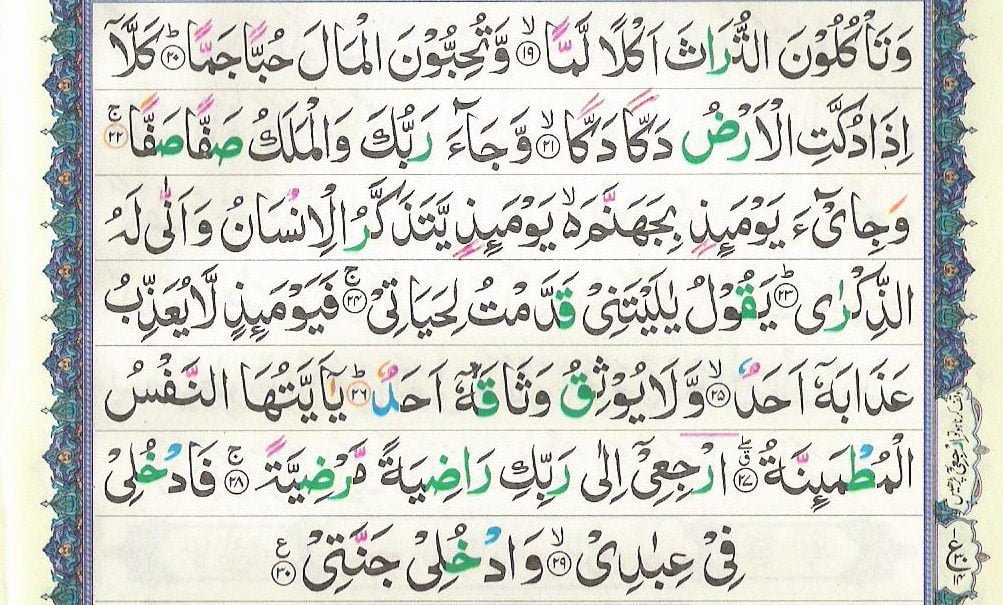 وَتَاْكُلُوْنَ التُّرَاثَ اَكْلًا لَّمًّا ۙ‏﴿۱۹﴾ وَّتُحِبُّوْنَ الْمَالَ حُبًّا جَمًّا ؕ‏﴿۲۰﴾ كَلَّاۤ
اِذَا دُكَّتِ الْاَرْضُ دَكًّا دَكًّا ۙ‏﴿۲۱﴾ وَّجَآءَ رَبُّكَ وَالْمَلَكُ صَفًّا صَفًّا ۚ‏﴿۲۲﴾
وَجِایْٓءَ يَوْمَئِذٍۭ بِجَهَنَّمَ ۙ۬ يَوْمَئِذٍ يَّتَذَكَّرُ الْاِنْسَانُ وَاَنّٰى لَهُ
الذِّكْرٰى ؕ‏﴿۲۳﴾ يَقُوْلُ يٰلَيْتَنِىْ قَدَّمْتُ لِحَيَاتِىْ ۚ‏﴿۲۴﴾ فَيَوْمَئِذٍ لَّا يُعَذِّبُ
عَذَابَهٗۤ اَحَدٌ ۙ‏﴿۲۵﴾ وَّلَا يُوْثِقُ وَثَاقَهٗۤ اَحَدٌ ؕ‏﴿۲۶﴾ يٰۤاَيَّتُهَا النَّفْسُ
الْمُطْمَئِنَّةُ ۖ‏﴿۲۷﴾ ارْجِعِىْۤ اِلٰى رَبِّكِ رَاضِيَةً مَّرْضِيَّةً ۚ‏﴿۲۸﴾ فَادْخُلِىْ
فِىْ عِبٰدِىْ ۙ‏﴿۲۹﴾ وَادْخُلِىْ جَنَّتِىْ ﴿۳۰﴾ ع
ع ۳۰